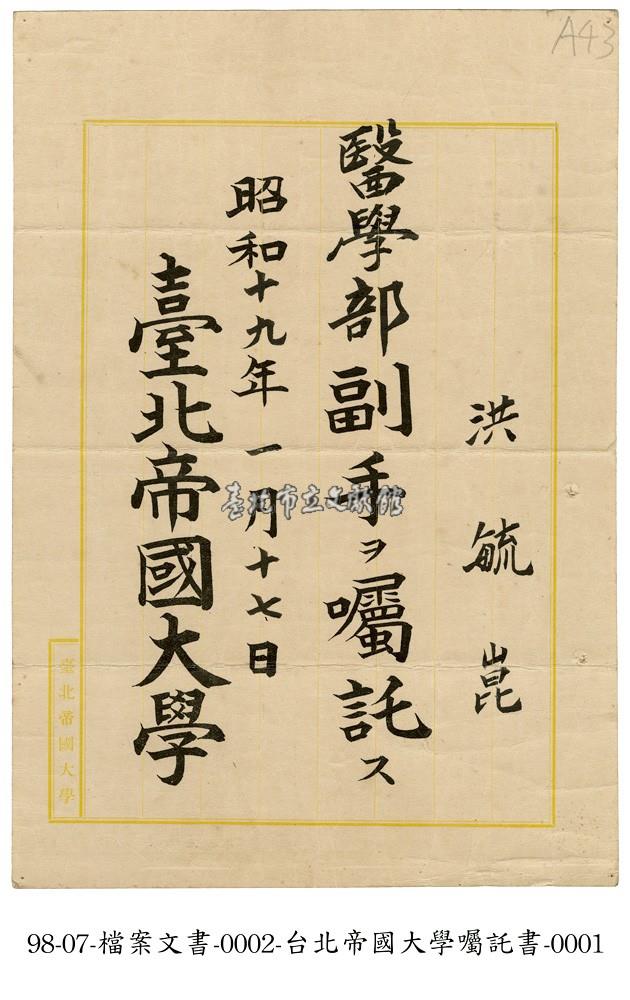 A43
洪毓崑
醫學部副手ヲ囑託ス
昭和十九年一月十七日
臺北帝國大學
臺北帝國大學
臺北市立文獻館
98-07-檔案文書-0002-台北帝國大學囑託書-0001